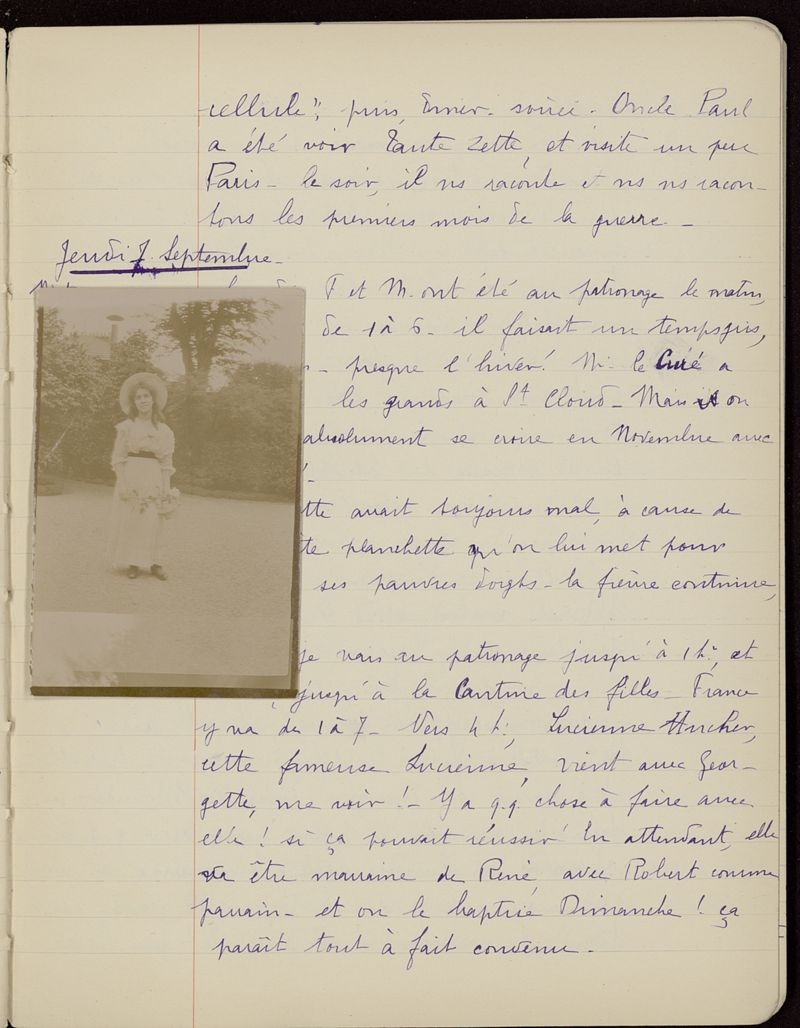 cellule", puis, dîner - soirée - Oncle Paul
a été voir Tante Zette, et visite un peu
Paris - le soir, il ns raconte et ns ns racon-
tons les premiers mois de la guerre -
Jeudi 7 Septembre -
F et M. ont été au patronage le matin,
de 1 à 6 - il faisait un temps gris,
- presque l'hiver! Mr le Curé a
les grands à St Cloud - Mais on
absolument se croire en Novembre avec
tte avait toujours mal, à cause de
te planchette qu'on lui met pour
ses pauvres doigts - la fièvre continue,
je vais au patronage jusqu'à 1h, et
, jusqu'à la Cantine des filles - France
y va de 1 à 7 - Vers 4 h, Lucienne Hucher,
cette fameuse Lucienne, vient avec Geor-
gette, me voir! - Y a q.q. chose à faire avec
elle! si ça pouvait réussir! En attendant, elle
va être marraine de René, avec Robert comme
parrain - et on le baptise Dimanche! ça
paraît tout à fait convenu -